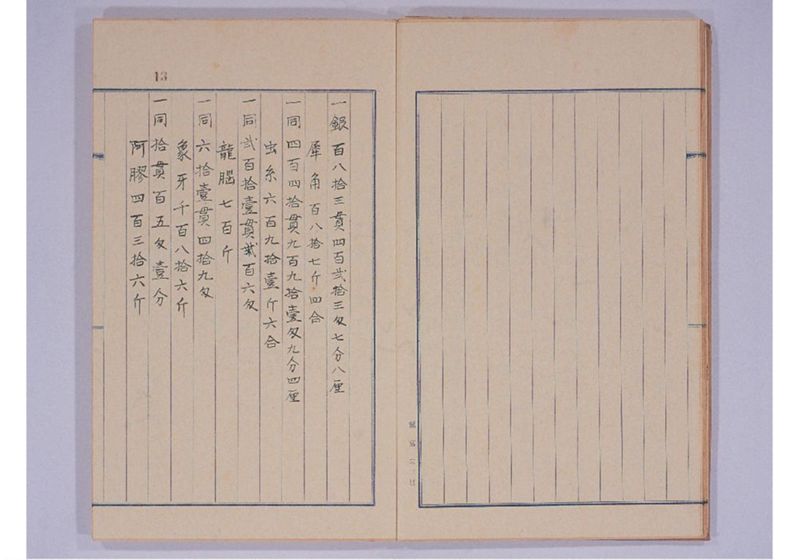 13
一銀百八拾三貫四百弐拾三匁七分八厘
犀角百八拾七斤四合
一同四百四拾貫九百九拾壹匁九分四厘
虫糸六百九拾壹斤六合
一同弐百拾壹貫弐百六匁
龍腦七百斤
一同六拾壹貫四拾九匁
象牙千百八拾六斤
一同拾貫百五匁壹分
阿膠四百三拾六斤